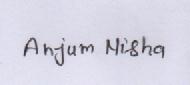 Anjum Nisha